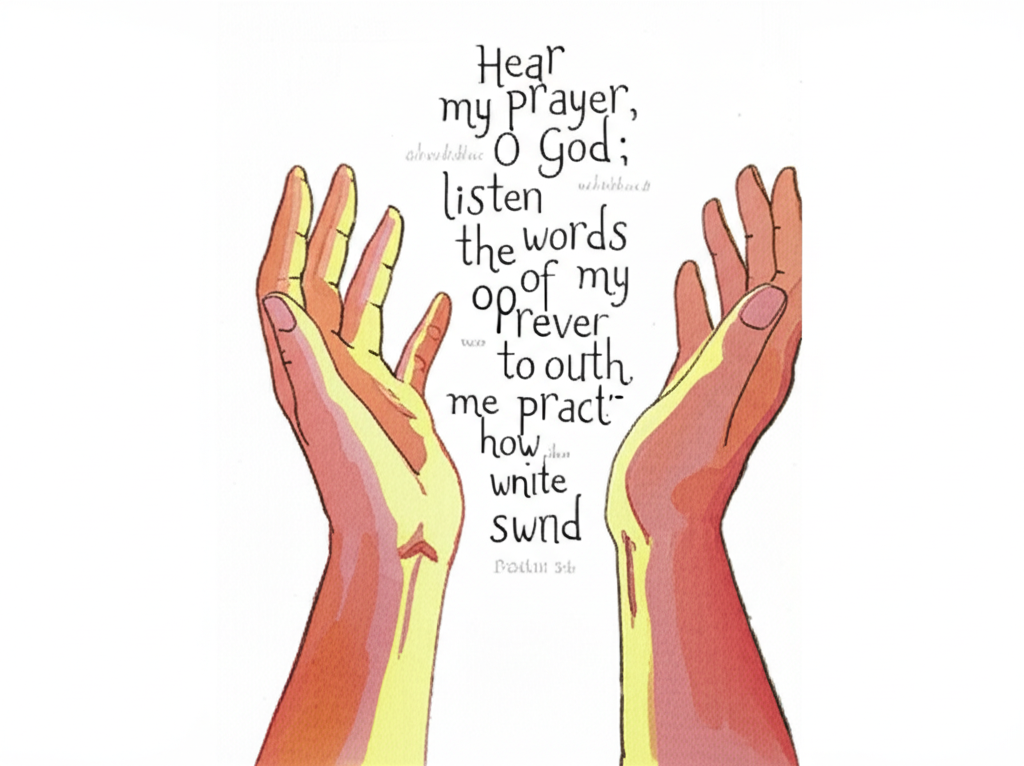 Hear
my prayer,
O God;
listen
the words
of my
op
rever
to outh,
me pract
how
wnite
swnd